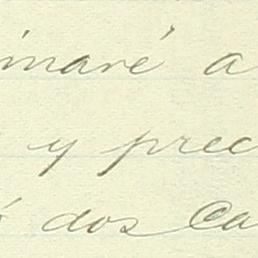 inaré a
y prec
dos Ca